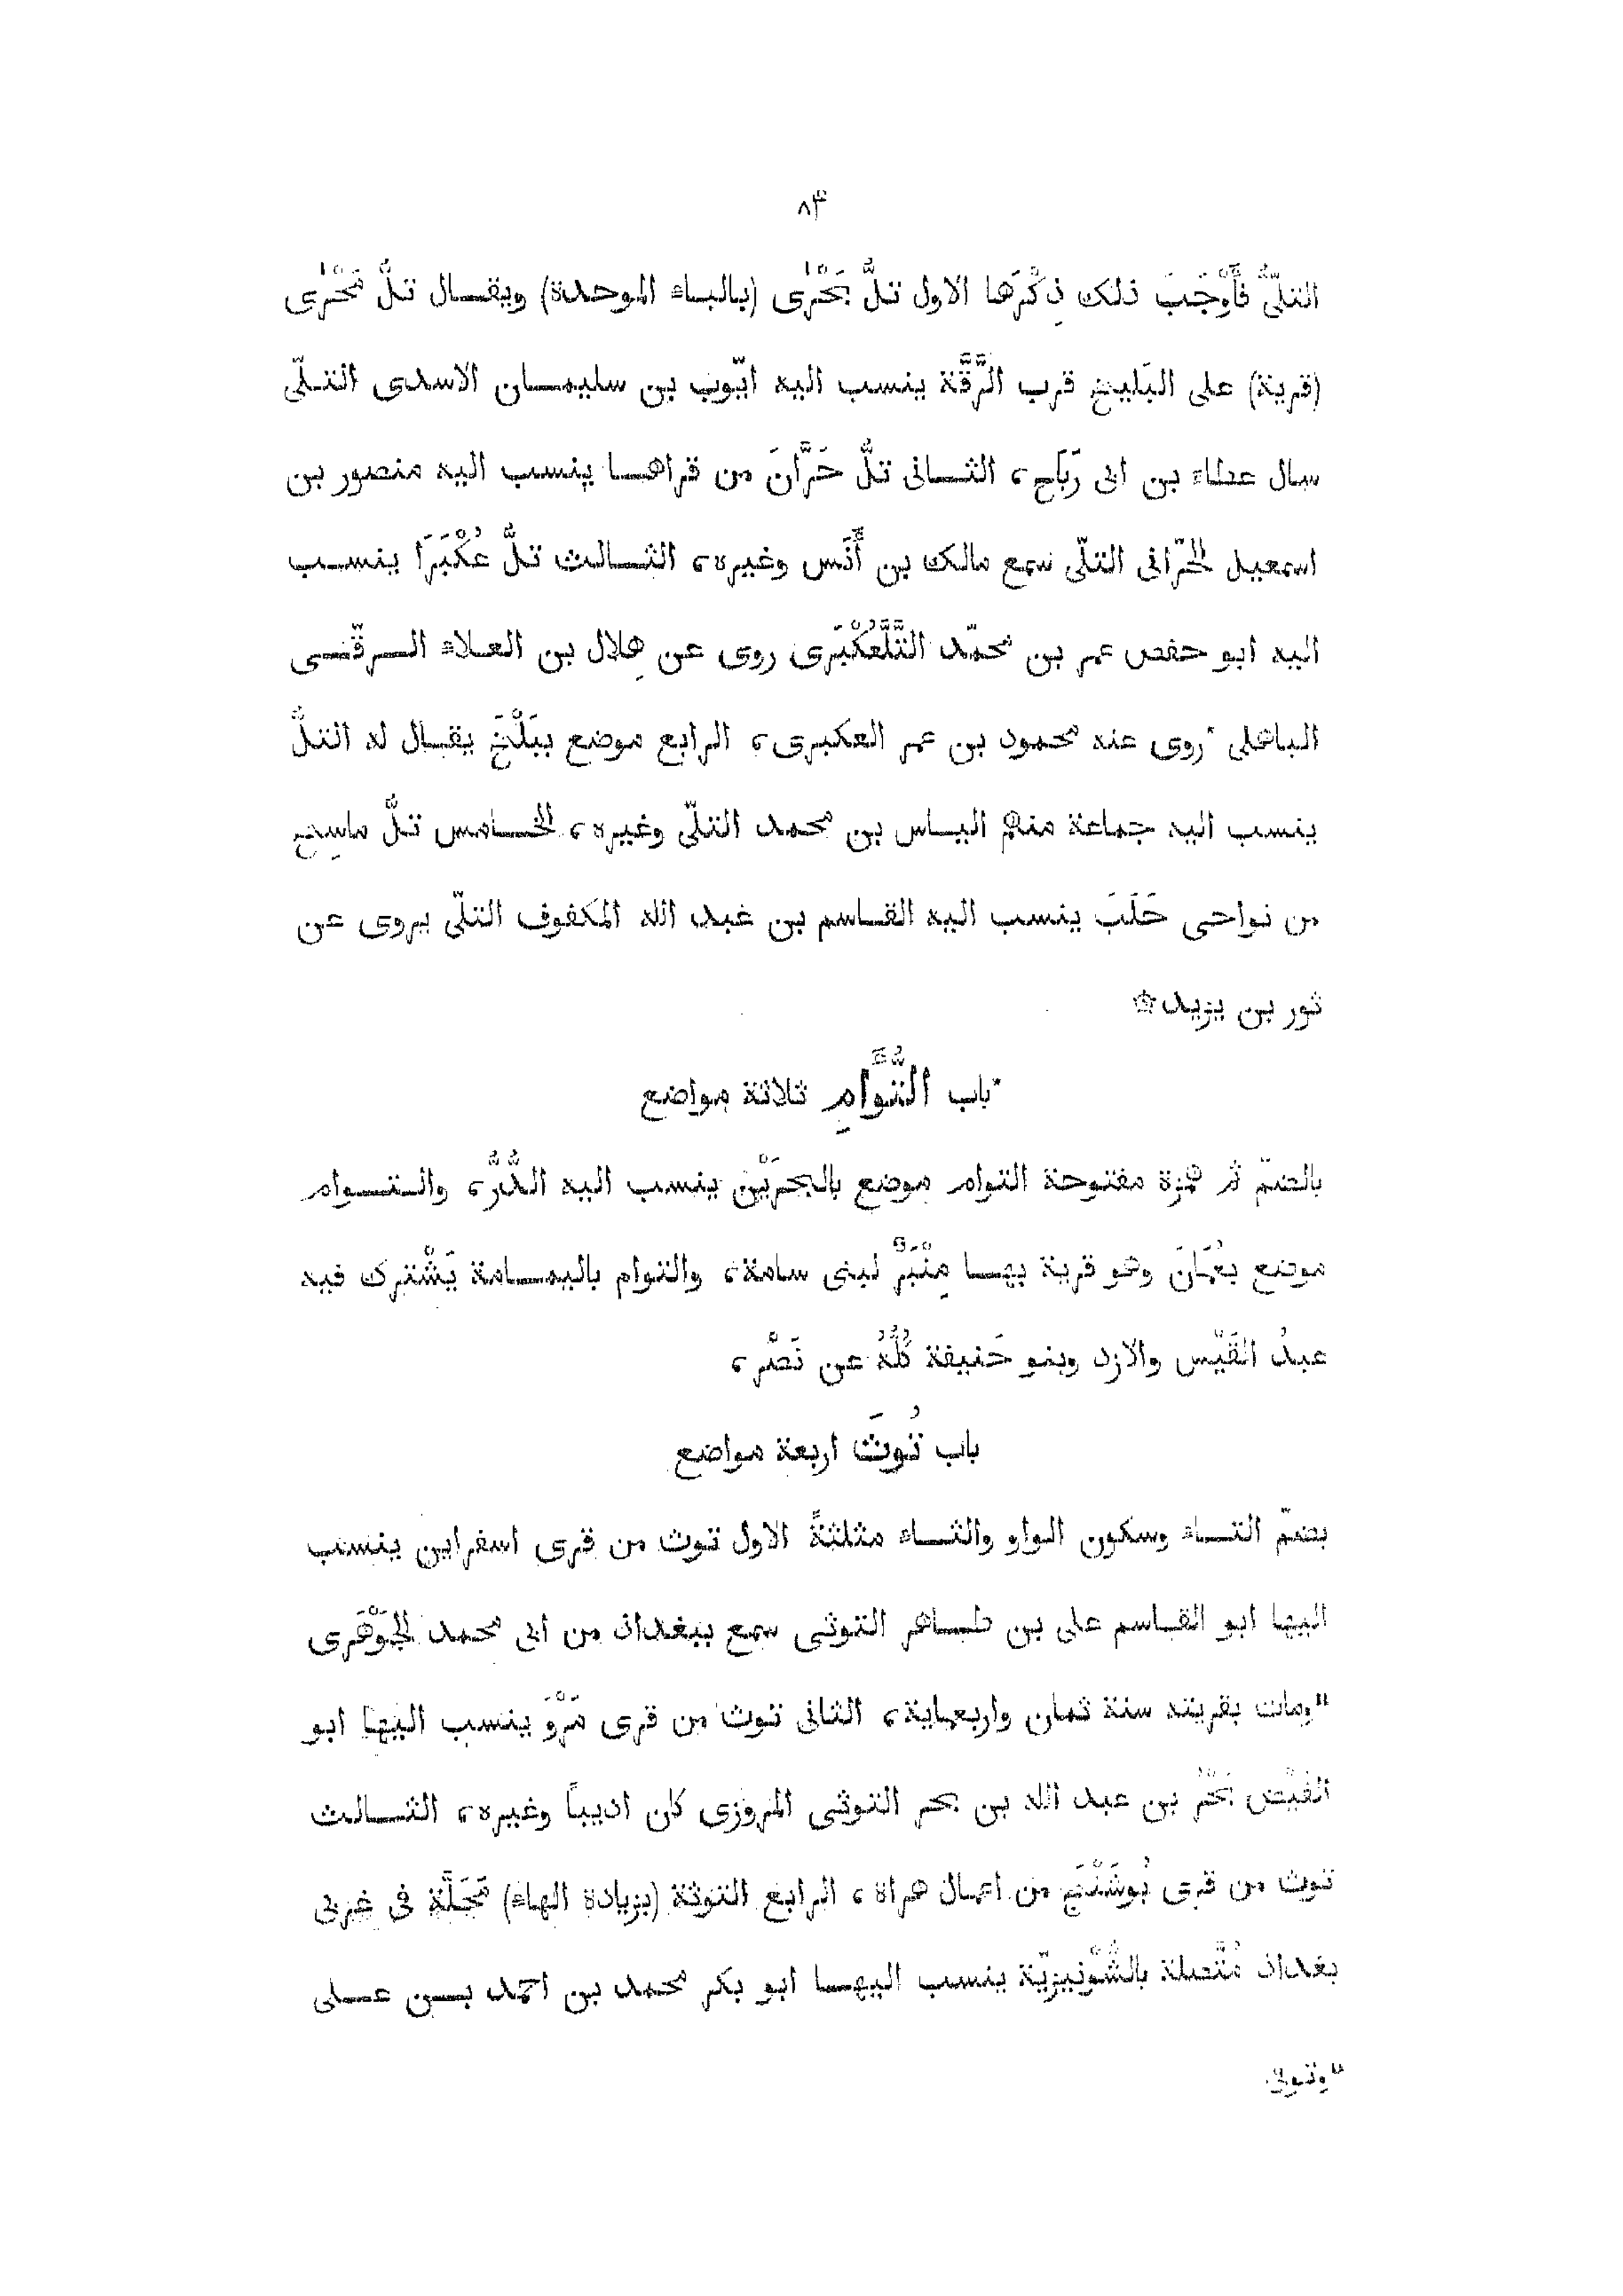 ٨٣
التلّىُّ فَأَوْجَبَ ذلك ذِكْرَها الاول تلُّ بَحْرَى (بالباء الموحدة) ويقال تلُّ مَحْرَى
(قرية) على البَليخ قرب الرَّقَّة ينسب اليه ايّوب بن سليمان الاسدى التلّى
سال عطاء بن ابى رَبَاح، الثانى تلُّ حَرَّانَ من قراها ينسب اليه منصور بن
اسمعيل الحَرّانى التلّى سمع مالك بن أَنَس وغيره، الثالث تلُّ عُكْبَرَا ينسب
اليه ابو حفص عمر بن محمّد التَّلَّعُكْبَرى روى عن هِلال بن العلاء الرقّى
الباهلى *روى عنه محمود بن عمر العكبرى، الرابع موضع ببَلْخَ يقال له التلُّ
ينسب اليه جماعة منهم الياس بن محمد التلّى وغيره، الخامس تلُّ ماسِح
من نواحى حَلَبَ ينسب اليه القاسم بن عبد الله المكفوف التلّى يروى عن
ثور بن يزيد☆
*باب التُّوَّامِ ثلاثة مواضع
بالضمّ ثم همزة مفتوحة التوام موضع بالبحرَيْن ينسب اليه الدُّرُّ، والتوام
موضع بعُمَانَ وهو قرية بها مِنْبَرٌ لبنى سامة، والتوام باليمامة يَشْترك فيه
عبدُ القَيْس والازد وبنو حَنيفة كُلُّهُ عن نَصْر،
باب تُوثَ اربعة مواضع
بضمّ التاء وسكون الواو والثاء مثلثةً الاول توث من قرى اسفراين ينسب
اليها ابو القاسم على بن طاهر التوثى سمع ببغداذ من ابى محمد الجَوْهَرى
"ومات بقريته سنة ثمان واربعماية، الثانى توث من قرى مَرْوَ ينسب اليها ابو
الفَيْض بَحْرُ بن عبد الله بن بحر التوثى المروزى كان اديباً وغيره، الثالث
توث من قرى بُوشَنْجَ من اعمال هراة، الرابع التوثة (بزيادة الهاء) مَحَلَّة فى غربى
بغداذ مُتَّصلة بالشُّونيزيّة ينسب اليها ابو بكر محمد بن احمد بن على